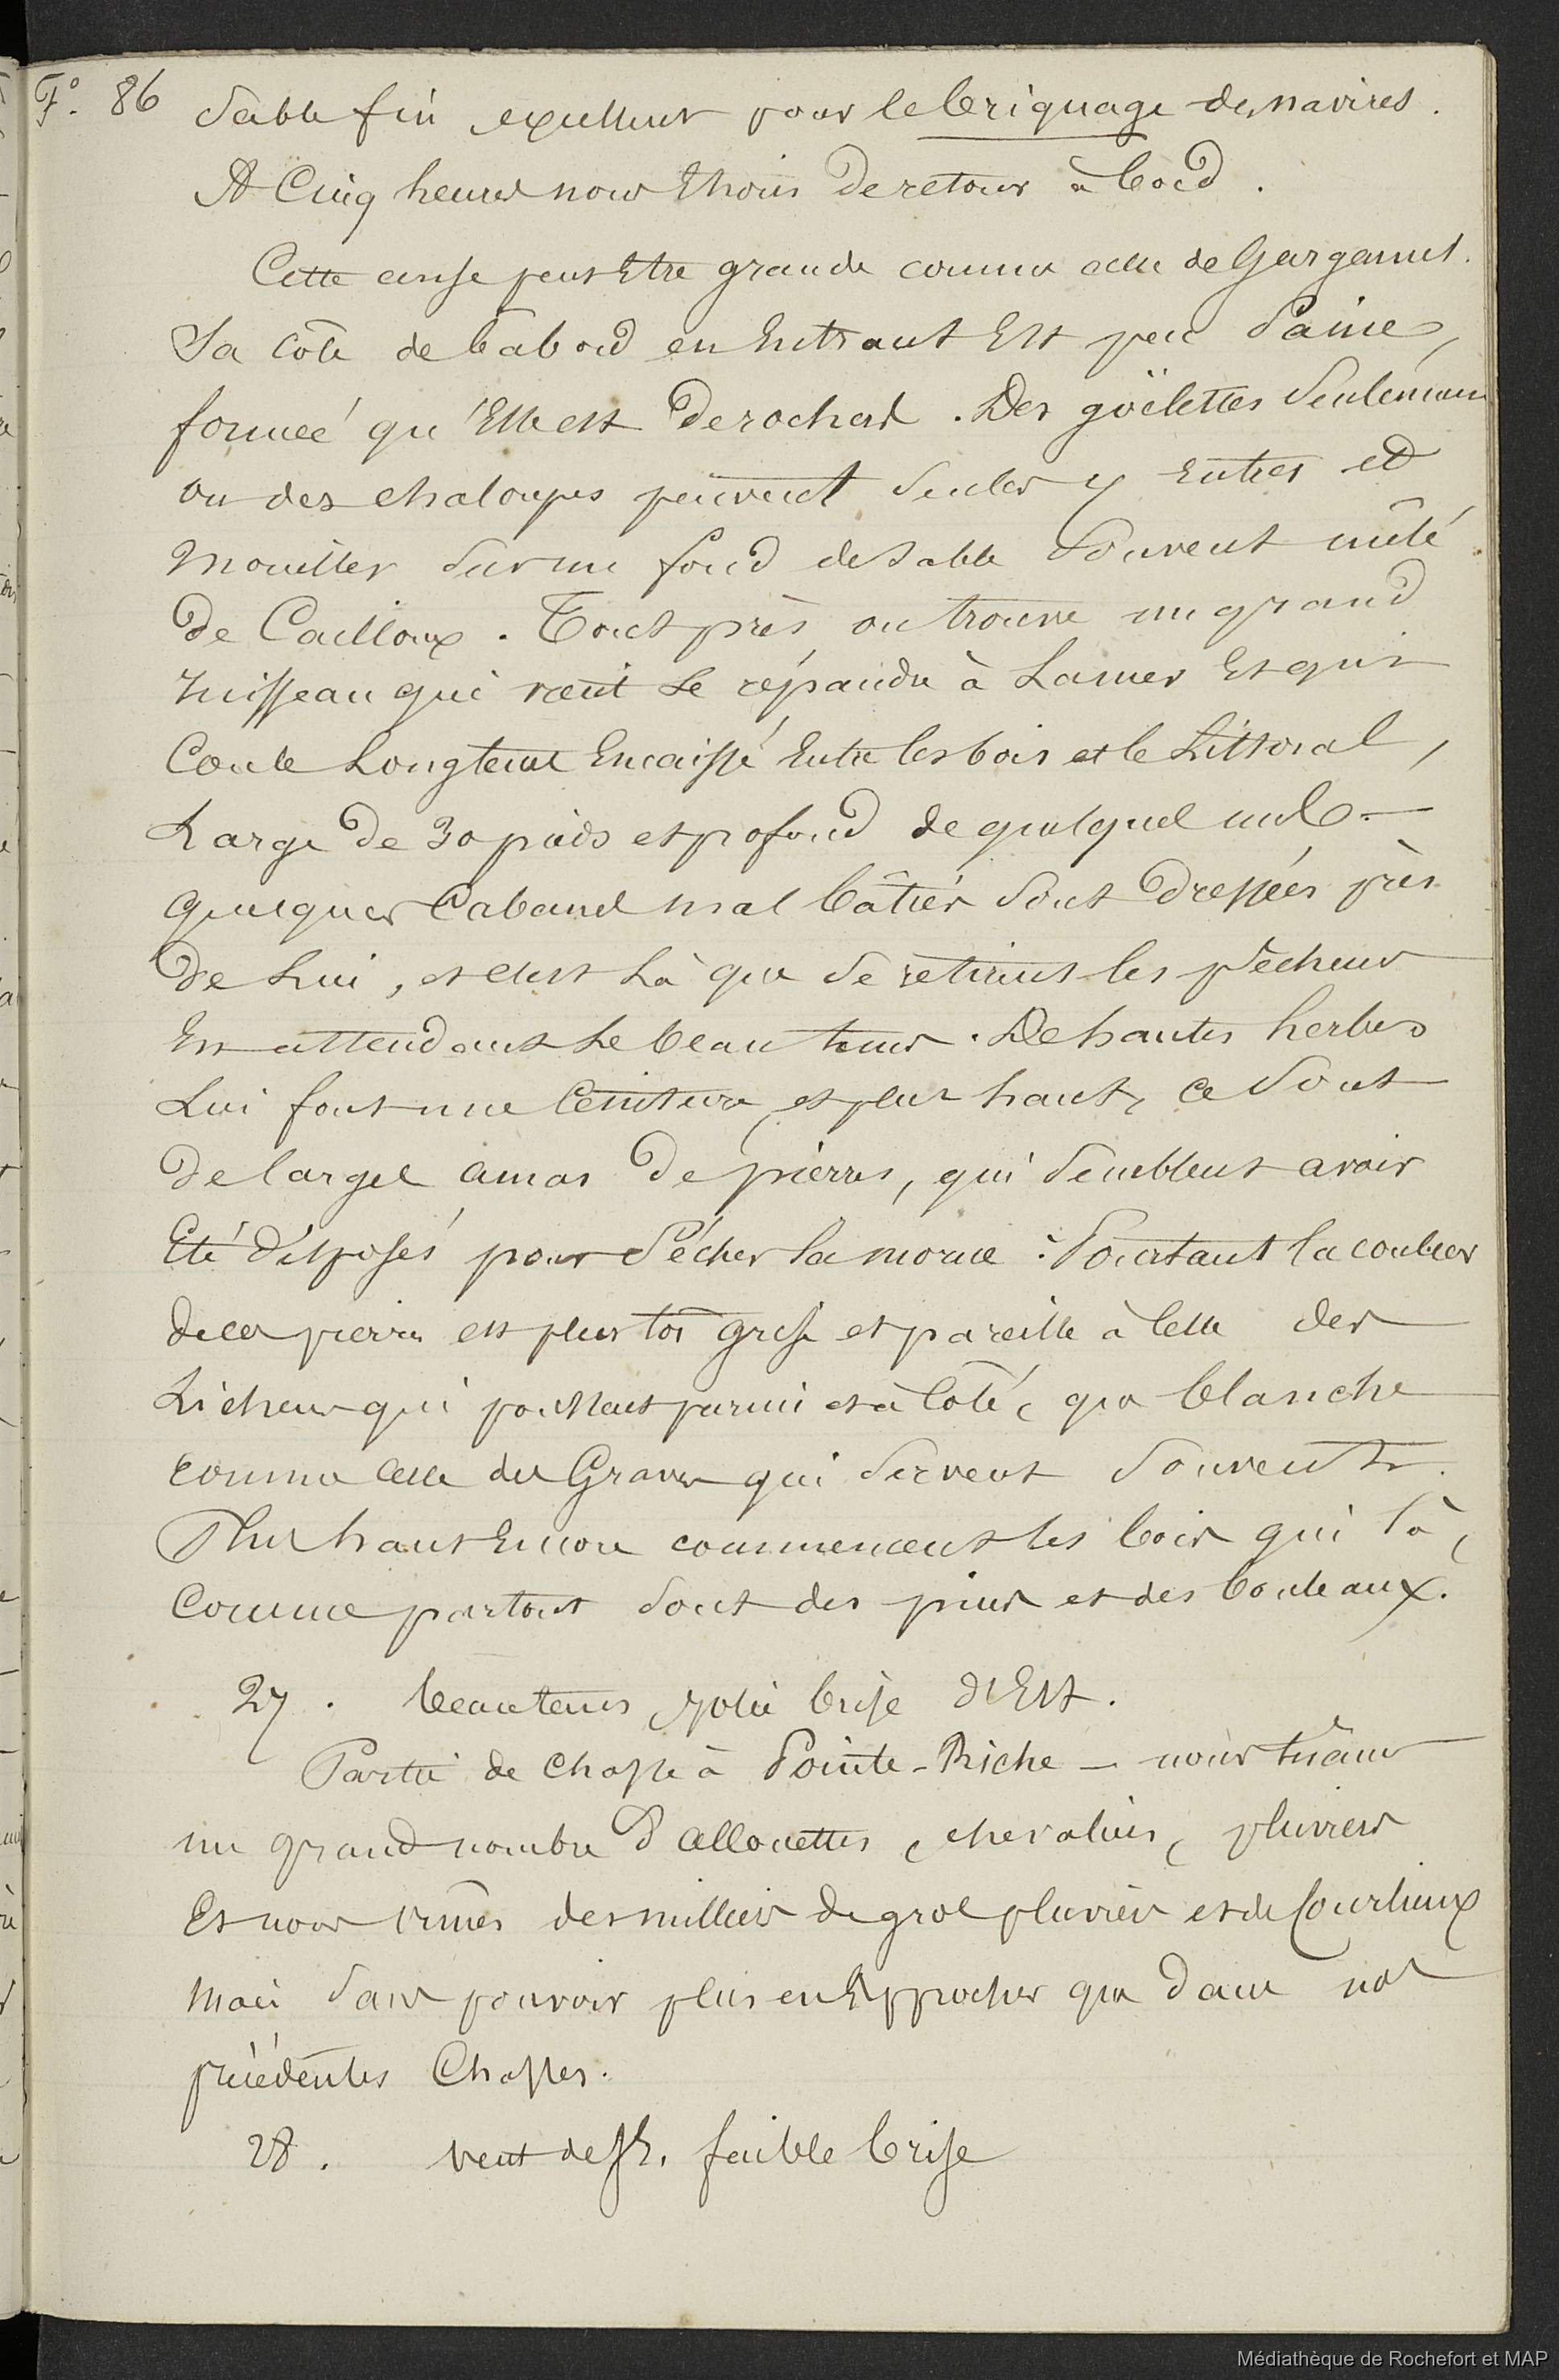 F° 86
Sable fin excellent pour le briquage des navires.
A Cinq heures nous étions de retour à bord.
Cette anse peut Etre grande comme celle de Gargamel.
Sa côte de babord en Entrant Est peu saine,
formée qu'Elle est de roches. Des goëlettes seulement
ou des chaloupes peuvent seules y entrer et
mouiller sur un fond de sable souvent mêlé
de Cailloux. Tout près, on trouve un grand
ruisseau qui vient se répandre à La mer Et qui
Coule Longtems Encaissé Entre les bois et le Littoral,
Large de 30 pieds et profond de quelques uns. —
Quelques Cabanes mal bâties sont dressées près
de Lui, et c'est Là que se retirent les pêcheurs
En attendant Le beau tems. De hautes herbes
Lui font une Ceinture, et plus haut, ce sont
de larges amas de pierres, qui semblent avoir
Eté disposés pour sécher la morue : Pourtant la couleur
de ces pierres est plus tôt grise et pareille à Celle des
Lichens qui poussent parmi et à Côté, que blanche
comme celle des Graves qui servent souvent.
Plus haut Encore commencent les bois qui là,
Comme partout sont des pins et des bouleaux.
27. beau tems, jolie brise d'Est.
Partie de chasse à Pointe-Riche — nous tuâmes
un grand nombre d'allouettes, chevaliers, pluviers
Et nous vîmes des milliers de gros pluviers et de Courlieux
mais sans pouvoir plus en Approcher que dans nos
précédentes Chasses.
28. vent de SE. faible brise
Médiathèque de Rochefort et MAP